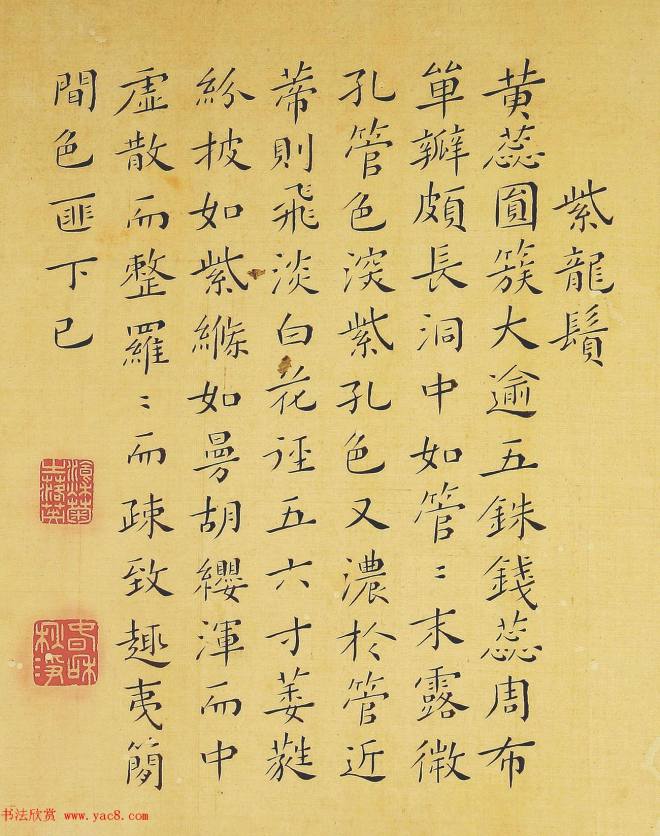 紫龍鬚
黄蕊圓簇大逾五銖錢蕊周布
單瓣頗長洞中如管〻末露微
孔管色淡紫孔色又濃於管近
蒂則飛淡白花徑五六寸萎蕤
紛披如紫絛如曼胡纓渾而中
虛散而整羅〻而疎致趣夷簡
間色匪下已
书法欣赏 www.yac8.com